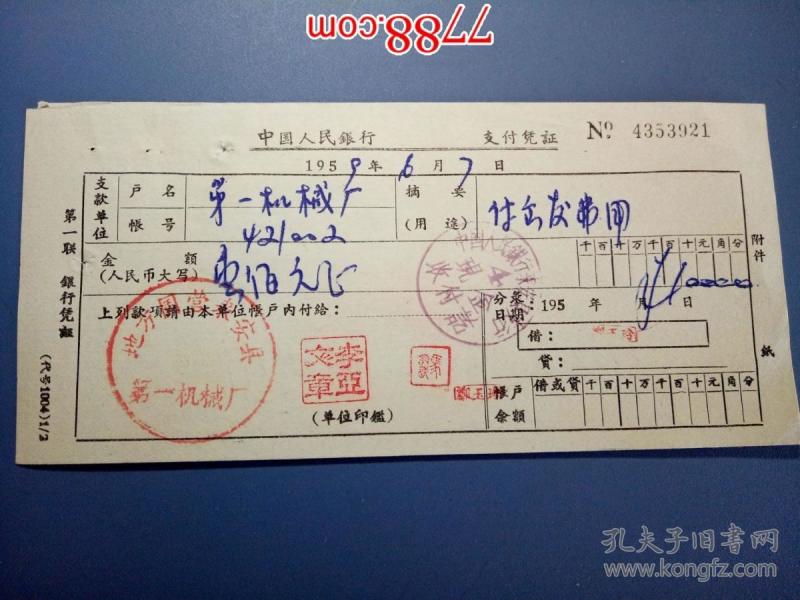 7788.com
中国人民銀行 支付凭証 Nº 4353921
1959年6月7日
第一联 銀行凭証
(代号1004)1/2
支款单位
户名 第一机械厂
帳号 421002
摘要(用途)
金額(人民币大写) 壹佰元正
千百十万千百十元角分
上列款項請由本单位帳户内付給:
分录日期:195 年 月 日
借:
貸:
帳户余額 借或貸 千百十万千百十元角分
附件 紙
地方国营 安县
第一机械厂
李亞文章
(单位印鑑)
现金
收付訖
孔夫子旧书网
www.kongfz.com